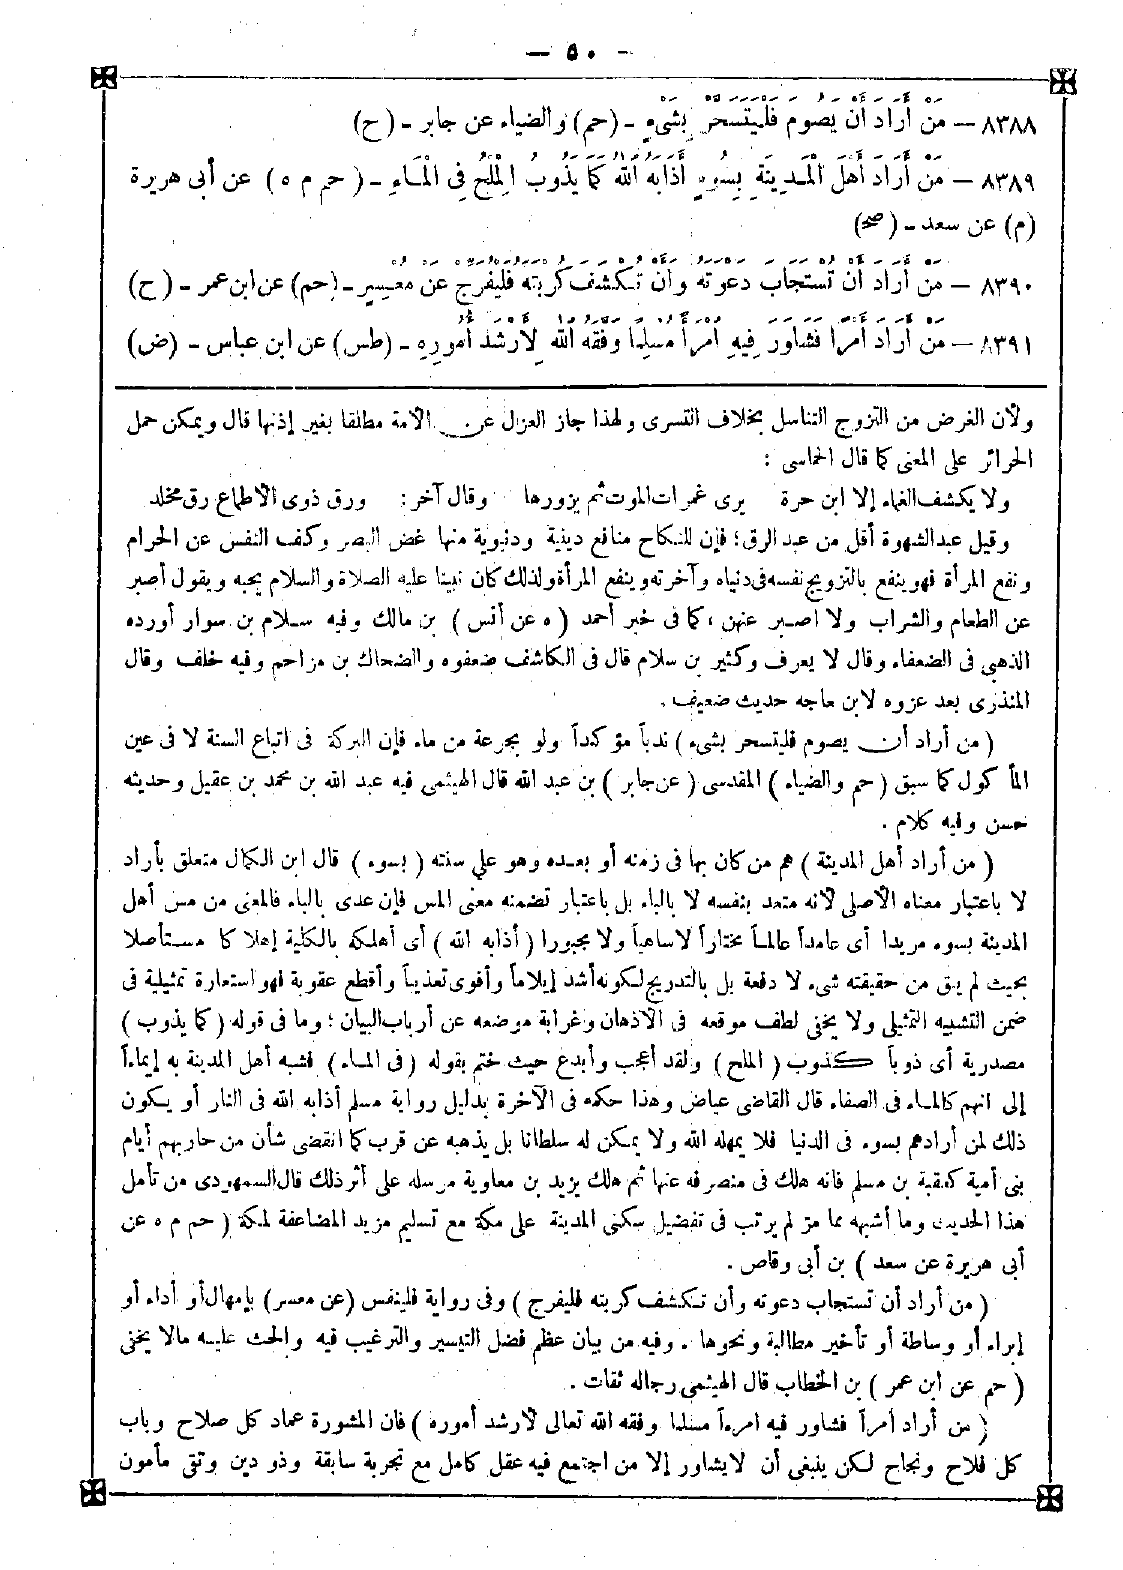 — ٥٠ —
٨٣٨٨ — مَنْ أَرَادَ أَنْ يَصُومَ فَلْيَتَسَحَّرْ بِشَيْءٍ - (حم) والضياء عن جابر - (ح)
٨٣٨٩ — مَنْ أَرَادَ أَهْلَ الْمَدِينَةِ بِسُوءٍ أَذَابَهُ اللهُ كَمَا يَذُوبُ الْمِلْحُ فِى الْمَاءِ - ( حم م ه ) عن أبى هريرة
(م) عن سعد - ( صح )
٨٣٩٠ — مَنْ أَرَادَ أَنْ تُسْتَجَابَ دَعْوَتُهُ وَأَنْ تُكْشَفَ كُرْبَتُهُ فَلْيُفَرِّجْ عَنْ مُعْسِرٍ - (حم) عن ابن عمر - ( ح )
٨٣٩١ — مَنْ أَرَادَ أَمْرًا فَشَاوَرَ فِيهِ امْرَأً مُسْلِمًا وَفَّقَهُ اللهُ لِأَرْشَدِ أُمُورِهِ - (طس) عن ابن عباس - (ض)
ولأن الغرض من التزوج التناسل بخلاف التسرى ولهذا جاز العزل عن الأمة مطلقا بغير إذنها قال ويمكن حمل
الحرائر على المعنى كما قال الحماسى :
ولا يكشف الغماء إلا ابن حرة يرى غمرات الموت ثم يزورها وقال آخر : ورق ذوى الأطماع رق مخلد
وقيل عبد الشهوة أقل من عبد الرق ؛ فإن للنكاح منافع دينية ودنيوية منها غض البصر وكف النفس عن الحرام
ونفع المرأة فهو ينفع بالتزويج نفسه فى دنياه وآخرته وينفع المرأة ولذلك كان نبينا عليه الصلاة والسلام يحبه ويقول أصبر
عن الطعام والشراب ولا اصبر عنهن ، كما فى خبر أحمد ( ه عن أنس ) بن مالك وفيه سلام بن سوار أورده
الذهبى فى الضعفاء وقال لا يعرف وكثير بن سلام قال فى الكاشف ضعفوه والضحاك بن مزاحم وفيه خلف وقال
المنذرى بعد عزوه لابن ماجه حديث ضعيف .
( من أراد أن يصوم فليتسحر بشىء ) ندباً مؤكداً ولو بجرعة من ماء فإن البركة فى اتباع السنة لا فى عين
المأكول كما سبق ( حم والضياء ) المقدسى ( عن جابر ) بن عبد الله قال الهيثمى فيه عبد الله بن محمد بن عقيل وحديثه
حسن وفيه كلام .
( من أراد أهل المدينة ) هم من كان بها فى زمنه أو بعده وهو على سنته ( بسوء ) قال ابن الكمال متعلق بأراد
لا باعتبار معناه الأصلى لأنه متعد بنفسه لا بالباء بل باعتبار تضمنه معنى المس فإن عدى بالباء فالمعنى من مس أهل
المدينة بسوء مريدا أى عامداً عالماً مختاراً لا ساهياً ولا مجبورا ( أذابه الله ) أى أهلكه بالكلية إهلاكا مستأصلا
بحيث لم يبق من حقيقته شىء لا دفعة بل بالتدريج لكونه أشد إيلاماً وأقوى تعذيباً وأقطع عقوبة فهو استعارة تمثيلية فى
ضمن التشبيه التمثيلى ولا يخفى لطف موقعه فى الأذهان وغرابة موضعه عن أرباب البيان ؛ وما فى قوله ( كما يذوب )
مصدرية أى ذوباً كذوب ( الملح ) ولقد أعجب وأبدع حيث ختم بقوله ( فى الماء ) فشبه أهل المدينة به إيماءاً
إلى انهم كالماء فى الصفاء قال القاضى عياض وهذا حكمه فى الآخرة بدليل رواية مسلم أذابه الله فى النار أو يكون
ذلك لمن أرادهم بسوء فى الدنيا فلا يمهله الله ولا يمكن له سلطانا بل يذهبه عن قرب كما انقضى شأن من حاربهم أيام
بنى أمية كعقبة بن مسلم فانه هلك فى منصرفه عنها ثم هلك يزيد بن معاوية مرسله على أثر ذلك قال السمهودى من تأمل
هذا الحديث وما أشبهه مما مرّ لم يرتب فى تفضيل سكنى المدينة على مكة مع تسليم مزيد المضاعفة لمكة ( حم م ه عن
أبى هريرة عن سعد ) بن أبى وقاص .
( من أراد أن تستجاب دعوته وأن تكشف كربته فليفرج ) وفى رواية فلينفس (عن معسر) بإمهال أو أداء أو
إبراء أو وساطة أو تأخير مطالبة ونحوها . وفيه من بيان عظم فضل التيسير والترغيب فيه والحث عليه مالا يخفى
( حم عن ابن عمر ) بن الخطاب قال الهيثمى رجاله ثقات .
( من أراد أمراً فشاور فيه امرءاً مسلما وفقه الله تعالى لأرشد أموره ) فان المشورة عماد كل صلاح وباب
كل فلاح ونجاح لكن ينبغى أن لا يشاور إلا من اجتمع فيه عقل كامل مع تجربة سابقة وذو دين وتقى مأمون